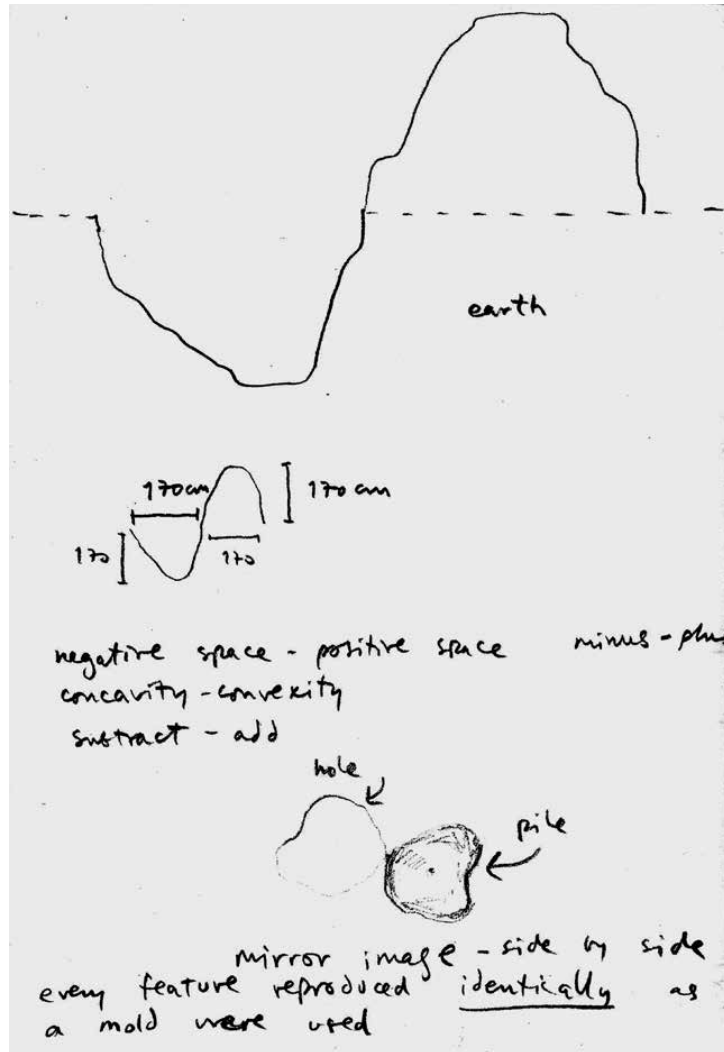 earth
170cm
170 cm
170
170
negative space - positive space minus - plu
concavity - convexity
substract - add
hole
pile
mirror image - side by side
every feature reproduced identically as
a mold were used